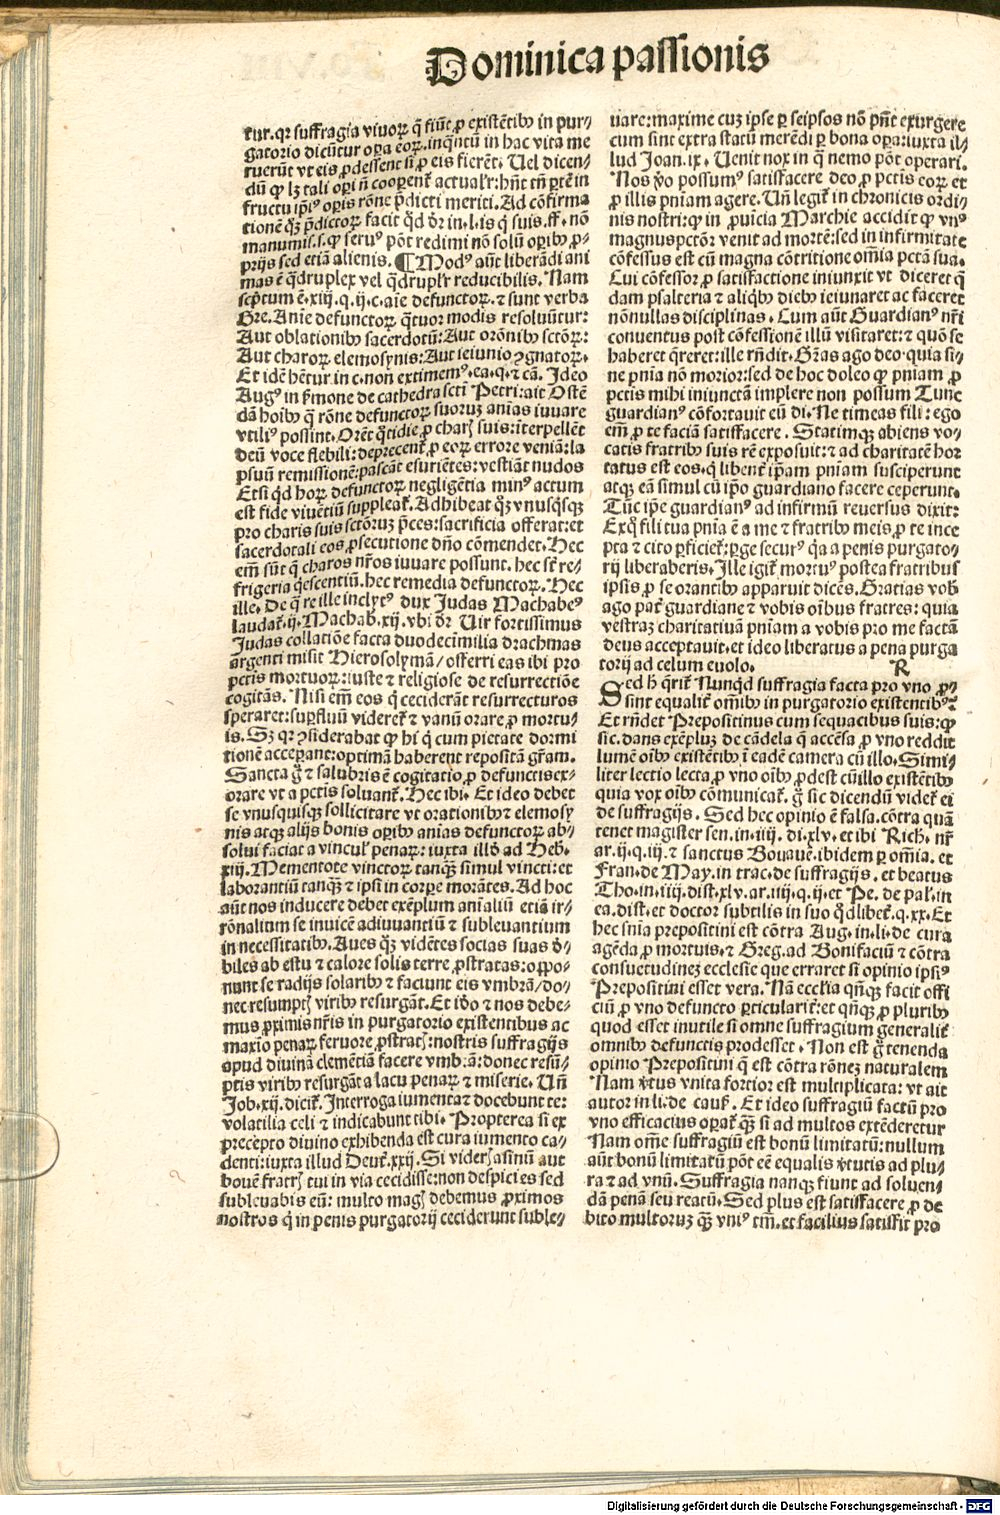 Dominica passionis
tur. qꝛ suffragia viuoꝝ q̄ fiūt ꝓ existētibꝰ in pur⸗
gatorio dicūtur oꝑa eoꝝ. inq̄ntū in hac vita me
ruerūt vt eis ꝓdessent si ꝓ eis fierēt. Uel dicen⸗
dū ꝙ lꝫ tali oꝑi nō cooꝑent᷑ actualr̄: hn̄t tn̄ ꝑtē in
fructu ipīꝰ oꝑis rōne p̄dicti meriti. Ad cōfirma
tionē q̄ꝫ p̄dictoꝝ facit qd̄ dr̄ in .l. is q̄ suis .ff. nō
manumis. s. ꝙ seruꝰ pōt redimi nō solū oꝑibꝰ ꝓ⸗
prijs sed etiā alienis. ¶ Modꝰ aūt liberādi ani
mas ē q̄druplex vel q̄druplr̄ reducibilis. Nam
scp̄tum ē. xiij. q. ij. c. aīe defunctoꝝ. ⁊ sunt verba
Gre. Anīe defunctoꝝ q̄tuor modis resoluūtur:
Aut oblationibꝰ sacerdotū: Aut orōnibꝰ sctōꝝ:
Aut charoꝝ elemosynis: Aut ieiunio ꝯgnatoꝝ.
Et idē hētur in c. non extimemꝰ. ea. q. ⁊ cā. Ideo
Augꝰ in ẜmone de cathedra sctī Petri: ait Ostē
dā hoībꝰ q̄ rōne defunctoꝝ suoruꝫ anīas iuuare
vtiliꝰ possint. Orēt q̄tidie ꝓ charis suis: īterpellēt
deū voce flebili: deprecent᷑ ꝓ eoꝝ errore veniā: la
psuū remissionē: pascāt esuriētes: vestiāt nudos
Etsi qd̄ hoꝝ defunctoꝝ negligētia minꝰ actum
est fide viuētiū suppleat᷑. Adhibeat q̄ꝫ vnusq̄sqꝫ
pro charis suis sctōꝝ p̄ces: sacrificia offerat: et
sacerdotali eos ꝓsecutione dn̄o cōmendet. Hec
em̄ sūt q̄ charos nr̄os iuuare possunt. hec st̄ re⸗
frigeria q̄escentiū. hec remedia defunctoꝝ. Hec
ille. De q̄ re ille inclytꝰ dux Judas Machabeꝰ
laudat᷑. ij. Machab. xij. vbi dr̄ Uir fortissimus
Judas collatiōe facta duodecīmilia drachmas
argenti misit Hierosolymā/ offerri eas ibi pro
pctīs mortuoꝝ: iuste ⁊ religiose de resurrectiōe
cogitās. Nisi em̄ eos q̄ ceciderāt resurrecturos
speraret: suꝑfluū videret᷑ ⁊ vanū orare ꝓ mortu⸗
is. Sꝫ qꝛ ꝯsiderabat ꝙ hi q̄ cum pietate dormi
tionē acceꝑant: optimā haberent repositā gr̄am.
Sancta ḡ ⁊ salubris ē cogitatio ꝓ defunctis ex⸗
orare vt a pctīs soluant᷑. Hec ibi. Et ideo debet
se vnusquisqꝫ sollicitare vt orationibꝰ ⁊ elemosy
nis atqꝫ alijs bonis oꝑibꝰ anīas defunctoꝝ ab⸗
solui faciat a vinculꝭ penaꝝ: iuxta illd̄ ad Heb.
xiij. Mementote vinctoꝝ tanqꝫ simul vincti: et
laborantiū tanqꝫ ⁊ ipsi in corꝑe morātes. Ad hoc
aūt nos inducere debet exēplum anīaliū etiā ir⸗
rōnalium se inuicē adiuuantiū ⁊ subleuantium
in necessitatibꝰ. Aues q̄ꝫ vidētes socias suas d̄⸗
biles ab estu ⁊ calore solis terre ꝓstratas: oꝑpo⸗
nunt se radijs solaribꝰ ⁊ faciunt eis vmbrā/ do⸗
nec resumptꝭ viribꝰ resurgāt. Et id̄o ⁊ nos debe⸗
mus ꝓximis nr̄is in purgatorio existentibus ac
maxīo penaꝝ feruore ꝓstratꝭ: nostris suffragijs
apud diuinā clemētiā facere vmbrā: donec resū⸗
ptis viribꝰ resurgāt a lacu penaꝝ ⁊ miserie. Un̄
Job. xij. dicit᷑. Interroga iumenta ⁊ docebunt te:
volatilia celi ⁊ indicabunt tibi. Propterea si ex
precepto diuino exhibenda est cura iumento ca⸗
denti: iuxta illud Deut᷑. xxij. Si viderꝭ asinū aut
bouē fratrꝭ tui in via cecidisse: non despicies sed
subleuabis eū: multo magꝭ debemus ꝓximos
nostros q̄ in penis purgatorij ceciderunt suble⸗
uare: maxime cuꝫ ipse ꝑ seipsos nō pn̄t exurgere
cum sint extra statū merēdi ꝑ bona oꝑa: iuxta il⸗
lud Joan. ix. Uenit nox in q̄ nemo pōt operari.
Nos ṽo possumꝰ satisfacere deo ꝓ pctīs eoꝝ et
ꝓ illis pn̄iam agere. Un̄ legit᷑ in chronicis ordi⸗
nis nostri: ꝙ in ꝓuīcia Marchie accidit ꝙ vnꝰ
magnus pctōr venit ad mortē: sed in infirmitate
cōfessus est cū magna cōtritione om̄ia pctā sua.
Cui cōfessor ꝓ satisfactione iniunxit vt diceret q̄
dam psalteria ⁊ aliqbꝰ diebꝰ ieiunaret ac faceret
nōnullas disciplinas. Cum aūt Guardianꝰ nr̄i
conuentus post cōfessionē illū visitaret: ⁊ quō se
haberet q̄reret: ille rn̄dit. Gr̄as ago deo quia si⸗
ne pn̄ia nō morior: sed de hoc doleo ꝙ pn̄iam ꝓ
pctīs mihi iniunctam implere non possum Tunc
guardianꝰ cōfortauit eū di. Ne timeas fili: ego
em̄ ꝓ te faciā satisfacere. Statimqꝫ abiens vo⸗
catis fratribꝰ suis rē exposuit: ⁊ ad charitatē hor
tatus est eos. q̄ libent᷑ ip̄am pn̄iam susciperunt
atqꝫ eā simul cū ip̄o guardiano facere ceperunt.
Tūc ip̄e guardianꝰ ad infirmū reuersus dixit:
Exq̄ fili tua pn̄ia ē a me ⁊ fratribꝰ meis ꝓ te ince
pta ⁊ cito ꝑficiet᷑: ꝑge securꝰ q̄a a penis purgato⸗
rij liberaberis. Ille igit᷑ mortuꝰ postea fratribus
ipsis ꝓ se orantibꝰ apparuit dicēs. Gratias vob̄
ago pat᷑ guardiane ⁊ vobis oībus fratres: quia
vestraꝫ charitatiuā pn̄iam a vobis pro me factā
deus acceptauit. et ideo liberatus a pena purga
torij ad celum euolo. R
Sed h̄ q̄rit᷑ Nunqd̄ suffragia facta pro vno ꝓ⸗
sint equalit᷑ om̄ibꝰ in purgatorio existentibꝰ?
Et rn̄det Prepositinus cum sequacibus suis: ꝙ
sic. dans exēpluꝫ de cādela q̄ accēsa ꝓ vno reddit
lumē oībꝰ existētibꝰ ī eadē camera cū illo. Simi⸗
liter lectio lecta ꝓ vno oībꝰ ꝓdest cū illo existētibꝰ
quia vox oībꝰ cōmunicat᷑. ḡ sic dicendū videt᷑ ei
de suffragijs. Sed hec opinio ē falsa. cōtra quā
tenet magister sen. in. iiij. di. xlv. et ibi Rich. nr̄
ar. ij. q. iij. ⁊ sanctus Bonauē. ibidem ꝑ om̄ia. et
Fran. de May. in trac. de suffragijs. et beatus
Tho. in. iiij. dist. xlv. ar. iiij. q. ij. et Pe. de pal. in
ea. dist. et doctor subtilis in suo q̄dlibet. q. xx. Et
hec sn̄ia prepositini est cōtra Aug. in li. de cura
agēda ꝓ mortuis. ⁊ Greg. ad Bonifaciū ⁊ cōtra
consuetudineꝫ ecclesie que erraret si opinio ipsiꝰ
Prepositini esset vera. Nā eccl̄ia qn̄qꝫ facit offi
ciū ꝓ vno defuncto ꝑticularit᷑: et qn̄qꝫ ꝓ pluribꝰ
quod esset inutile si omne suffragium generalit᷑
omnibꝰ defunctis prodesset. Non est ḡ tenenda
opinio Prepositini q̄ est cōtra rōneꝫ naturalem
Nam ṽtus vnita fortior est multiplicata: vt ait
autor in li. de causꝭ. Et ideo suffragiū factū pro
vno efficacius oꝑat᷑ qꝫ si ad multos extēderetur
Nam om̄e suffragiū est bonū limitatū: nullum
aūt bonū limitatū pōt eē equalis ṽtutis ad plu⸗
ra ⁊ ad vnū. Suffragia nanqꝫ fiunt ad soluen⸗
dā penā seu reatū. Sed plus est satisfacere ꝓ de
bito multoruꝫ qꝫ vniꝰ tm̄. et facilius satisfit pro
Digitalisierung gefördert durch die Deutsche Forschungsgemeinschaft - DFG